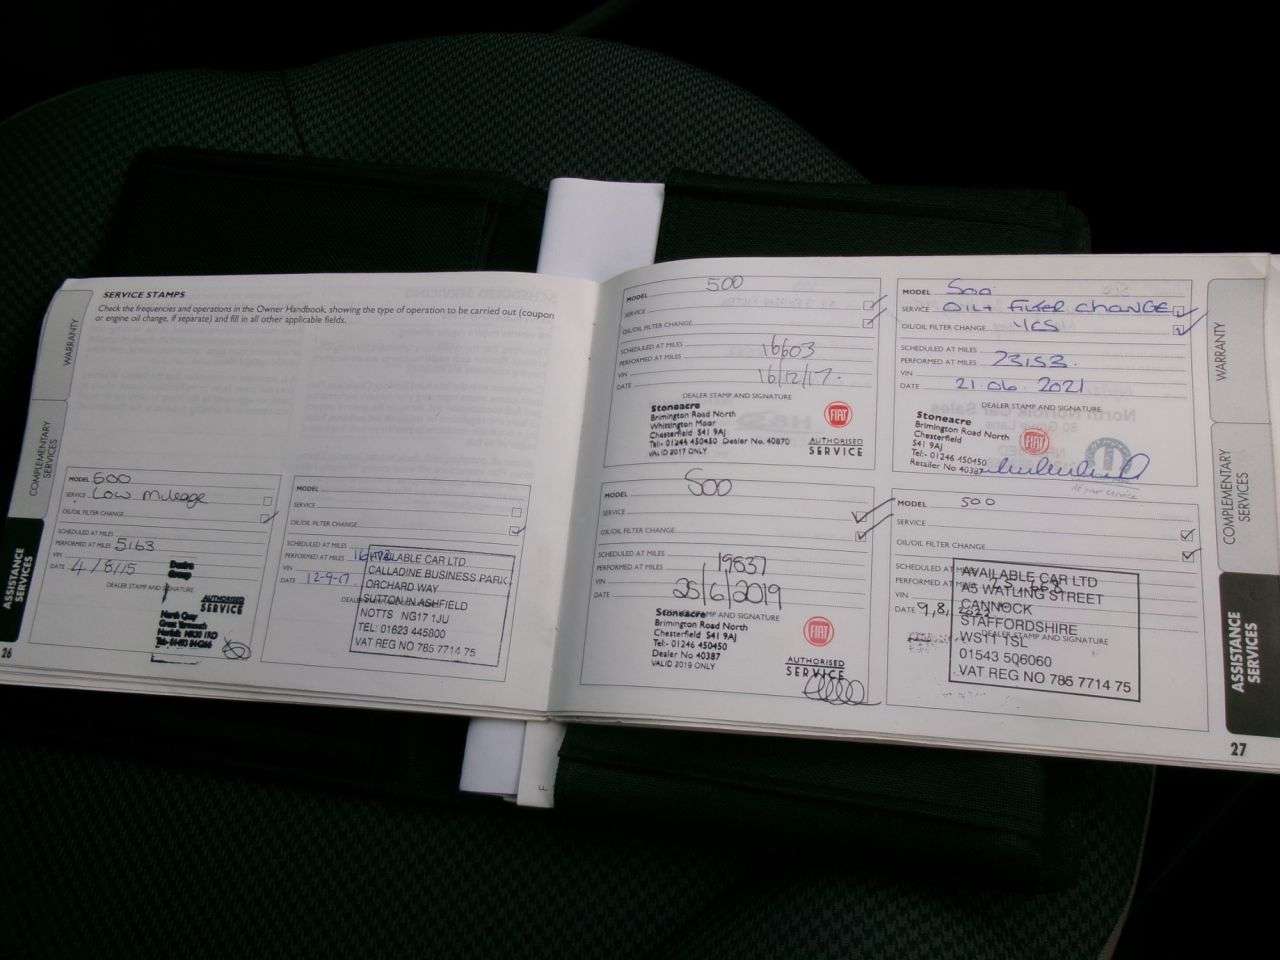 SERVICE STAMPS
Check the frequencies and operations in the Owner Handbook, showing the type of operation to be carried out (coupon
or engine oil change, if separate) and fill in all other applicable fields.
WARRANTY
COMPLEMENTARY
SERVICES
ASSISTANCE
SERVICES
26
MODEL 500
SERVICE Low Mileage
OIL/OIL FILTER CHANGE
SCHEDULED AT MILES
PERFORMED AT MILES 5163
VIN
DATE 4/8/15
DEALER STAMP AND SIGNATURE
Group
AUTHORISED
SERVICE
MODEL
SERVICE
OIL/OIL FILTER CHANGE
SCHEDULED AT MILES
PERFORMED AT MILES
VIN
DATE 12-9-17
AVAILABLE CAR LTD
CALLADINE BUSINESS PARK
ORCHARD WAY
SUTTON IN ASHFIELD
NOTTS NG17 1JU
TEL: 01623 445800
VAT REG NO 785 7714 75
MODEL 500
SERVICE
OIL/OIL FILTER CHANGE
SCHEDULED AT MILES
PERFORMED AT MILES 16603
VIN
DATE 16/12/17.
DEALER STAMP AND SIGNATURE
Stoneacre
Brimington Road North
Whittington Moor
Chesterfield S41 9AJ
Tel:- 01246 450450 Dealer No. 40870
VALID 2017 ONLY
FIAT
AUTHORISED
SERVICE
MODEL 500
SERVICE OIL+ FILTER CHANGE
OIL/OIL FILTER CHANGE YES
SCHEDULED AT MILES
PERFORMED AT MILES 23153.
VIN
DATE 21.06.2021
DEALER STAMP AND SIGNATURE
Stoneacre
Brimington Road North
Chesterfield
S41 9AJ
Tel:- 01246 450450
Retailer No 40387
FIAT
MODEL 500
SERVICE
OIL/OIL FILTER CHANGE
SCHEDULED AT MILES
PERFORMED AT MILES 19637
VIN
DATE 25/6/2019
STAMP AND SIGNATURE
Stoneacre
Brimington Road North
Chesterfield S41 9AJ
Tel:- 01246 450450
Dealer No 40387
VALID 2019 ONLY
FIAT
AUTHORISED
SERVICE
MODEL 500
SERVICE
OIL/OIL FILTER CHANGE
SCHEDULED AT MILES
PERFORMED AT MILES
VIN
DATE
DEALER STAMP AND SIGNATURE
AVAILABLE CAR LTD
A5 WATLING STREET
CANNOCK
STAFFORDSHIRE
WS11 1SL
01543 506060
VAT REG NO 785 7714 75
WARRANTY
COMPLEMENTARY
SERVICES
ASSISTANCE
SERVICES
27